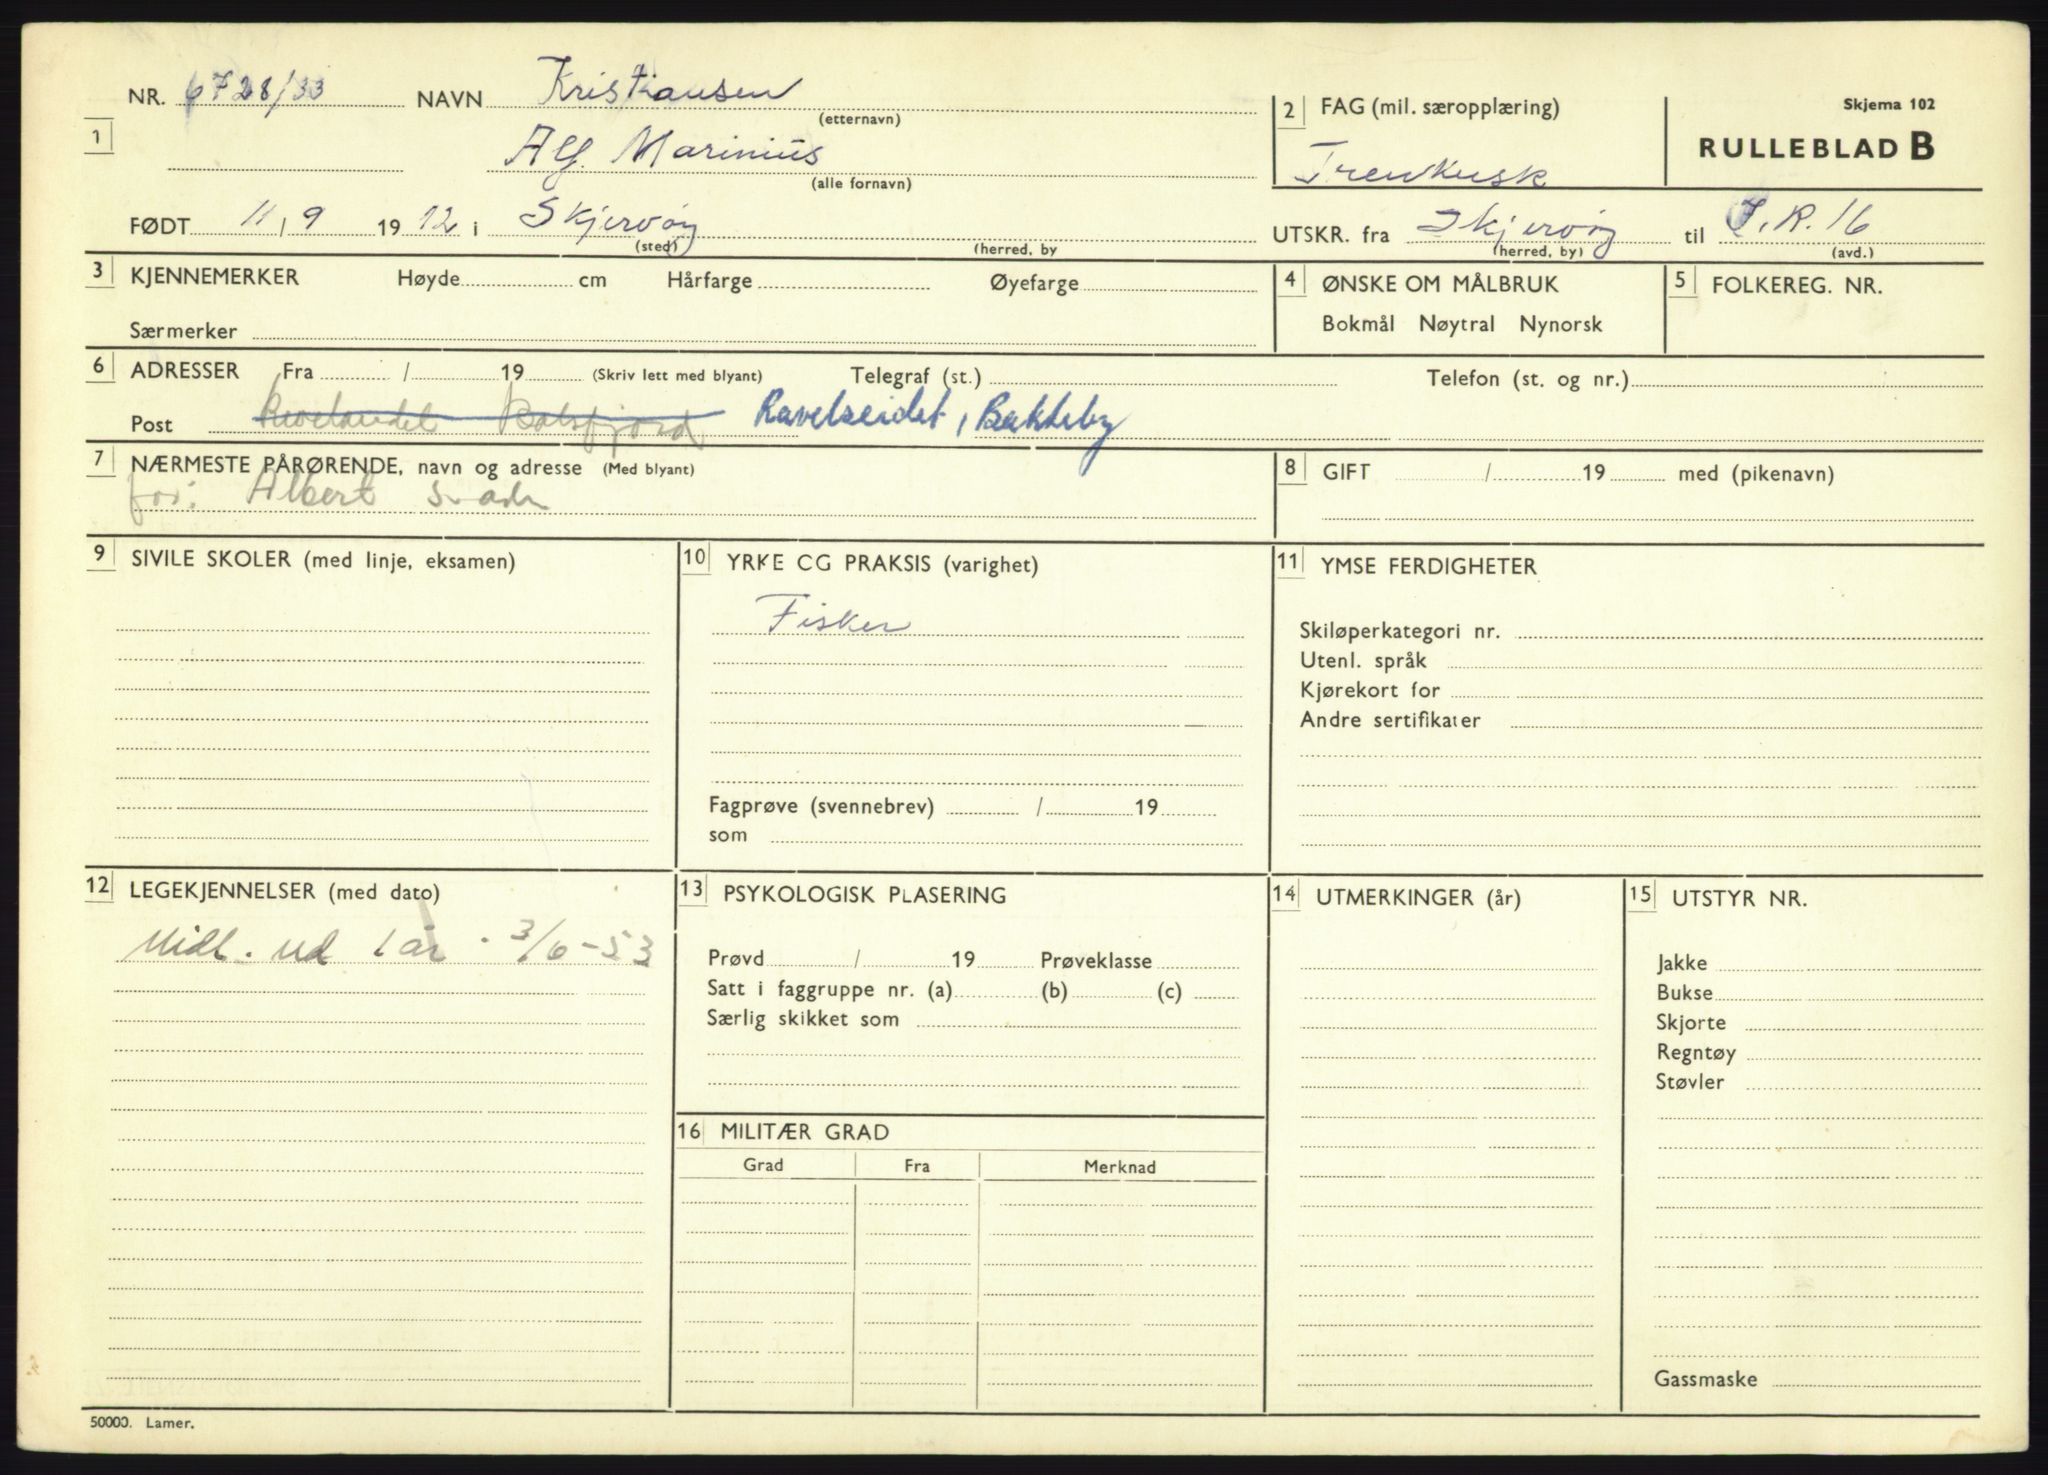 NR. 6728/33 NAVN Kristiansen
(etternavn)
2 FAG (mil. særopplæring)
Skjema 102
RULLEBLAD B
1
Alf Marinius
(alle fornavn)
Trenkusk
FØDT 11, 9 1912 i Skjervøy
(sted) (herred, by
UTSKR. fra Skjervøy til I.R. 16
(herred, by) (avd.)
3 KJENNEMERKER Høyde cm Hårfarge Øyefarge
Særmerker
4 ØNSKE OM MÅLBRUK
Bokmål Nøytral Nynorsk
5 FOLKEREG. NR.
6 ADRESSER Fra / 19 (Skriv lett med blyant) Telegraf (st.) Telefon (st. og nr.)
Post Balsfjord Ravelseidet, Bakkeby
7 NÆRMESTE PÅRØRENDE, navn og adresse (Med blyant)
far: Albert
8 GIFT / 19 med (pikenavn)
9 SIVILE SKOLER (med linje, eksamen)
10 YRKE CG PRAKSIS (varighet)
Fisker
Fagprøve (svennebrev) / 19
som
11 YMSE FERDIGHETER
Skiløperkategori nr.
Utenl. språk
Kjørekort for
Andre sertifikater
12 LEGEKJENNELSER (med dato)
Midl. ud 1 år. 3/6-53
13 PSYKOLOGISK PLASERING
Prøvd / 19 Prøveklasse
Satt i faggruppe nr. (a) (b) (c)
Særlig skikket som
14 UTMERKINGER (år)
15 UTSTYR NR.
Jakke
Bukse
Skjorte
Regntøy
Støvler
Gassmaske
16 MILITÆR GRAD
Grad Fra Merknad
50000. Lamer.